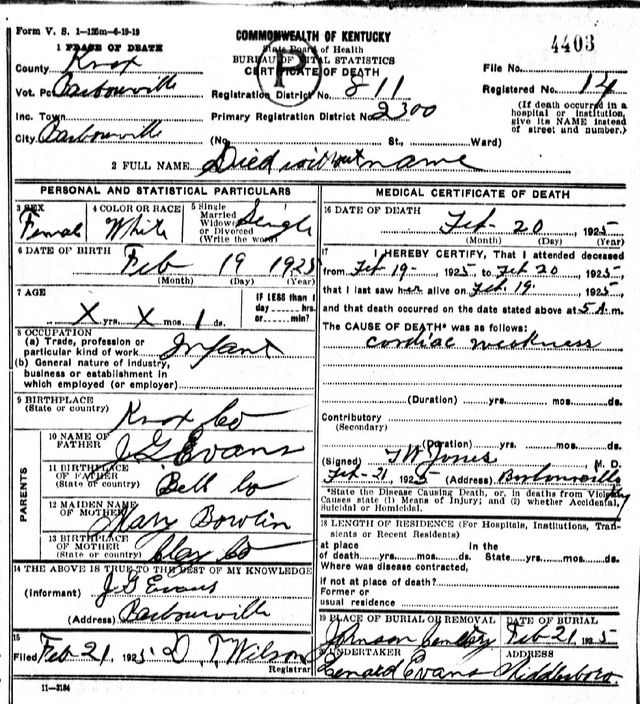 Form V. S. 1—125m—6-19-19
COMMONWEALTH OF KENTUCKY
State Board of Health
BUREAU OF VITAL STATISTICS
CERTIFICATE OF DEATH
P
4403
1 PLACE OF DEATH
County Knox
File No.
Vot. Pct Barbourville
Registration District No. 811
Registered No. 14
Inc. Town
Primary Registration District No. 2300
(If death occurred in a hospital or institution, give its NAME instead of street and number.)
City Barbourville
(No. St., Ward)
2 FULL NAME Died without name
PERSONAL AND STATISTICAL PARTICULARS
3 SEX Female
4 COLOR OR RACE White
5 Single Married Widowed or Divorced (Write the word) Single
6 DATE OF BIRTH Feb 19 1925
(Month) (Day) (Year)
7 AGE
X yrs. X mos. 1 ds.
IF LESS than 1 day hrs. or min?
8 OCCUPATION
(a) Trade, profession or particular kind of work Infant
(b) General nature of industry, business or establishment in which employed (or employer)
9 BIRTHPLACE
(State or country) Knox Co
PARENTS
10 NAME OF FATHER J G Evans
11 BIRTHPLACE OF FATHER (State or country) Bell Co
12 MAIDEN NAME OF MOTHER Mary Bowlin
13 BIRTHPLACE OF MOTHER (State or country) Clay Co
14 THE ABOVE IS TRUE TO THE BEST OF MY KNOWLEDGE
(Informant) J G Evans
(Address) Barbourville
15
Filed Feb 21, 1925 D. T Wilson
Registrar
11—3184
MEDICAL CERTIFICATE OF DEATH
16 DATE OF DEATH Feb- 20 1925
(Month) (Day) (Year)
17 I HEREBY CERTIFY, That I attended deceased
from Feb 19- 1925 to Feb 20 1925,
that I last saw her alive on Feb. 19. 1925,
and that death occurred on the date stated above at 5 A.m.
The CAUSE OF DEATH* was as follows:
Cardiac weakness
(Duration) yrs. mos. ds.
Contributory
(Secondary)
(Duration) yrs. mos. ds.
(Signed) T W Jones M. D.
Feb-21, 1925 (Address) Barbourville
*State the Disease Causing Death, or, in deaths from Violent
Causes state (1) Means of Injury; and (2) whether Accidental,
Suicidal or Homicidal.
18 LENGTH OF RESIDENCE (For Hospitals, Institutions, Transients or Recent Residents)
at place of death yrs. mos. ds. In the State yrs. mos. ds.
Where was disease contracted,
if not at place of death?
Former or
usual residence
19 PLACE OF BURIAL OR REMOVAL
Johnson Cemetary
DATE OF BURIAL
Feb 21, 1925
UNDERTAKER
Evans
ADDRESS
Middlesboro.